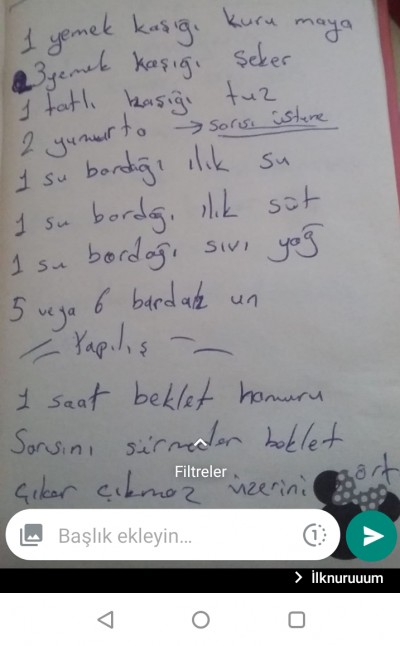 1 yemek kaşığı kuru maya
3 yemek kaşığı şeker
1 tatlı kaşığı tuz
2 yumurta → sarısı üstüne
1 su bardağı ılık su
1 su bardağı ılık süt
1 su bardağı sıvı yağ
5 veya 6 bardak un
Yapılış
1 saat beklet hamuru
Sarısını sürmeden beklet
Filtreler
çıkar çıkmaz üzerini ört
Başlık ekleyin...
1
İlknuruuum